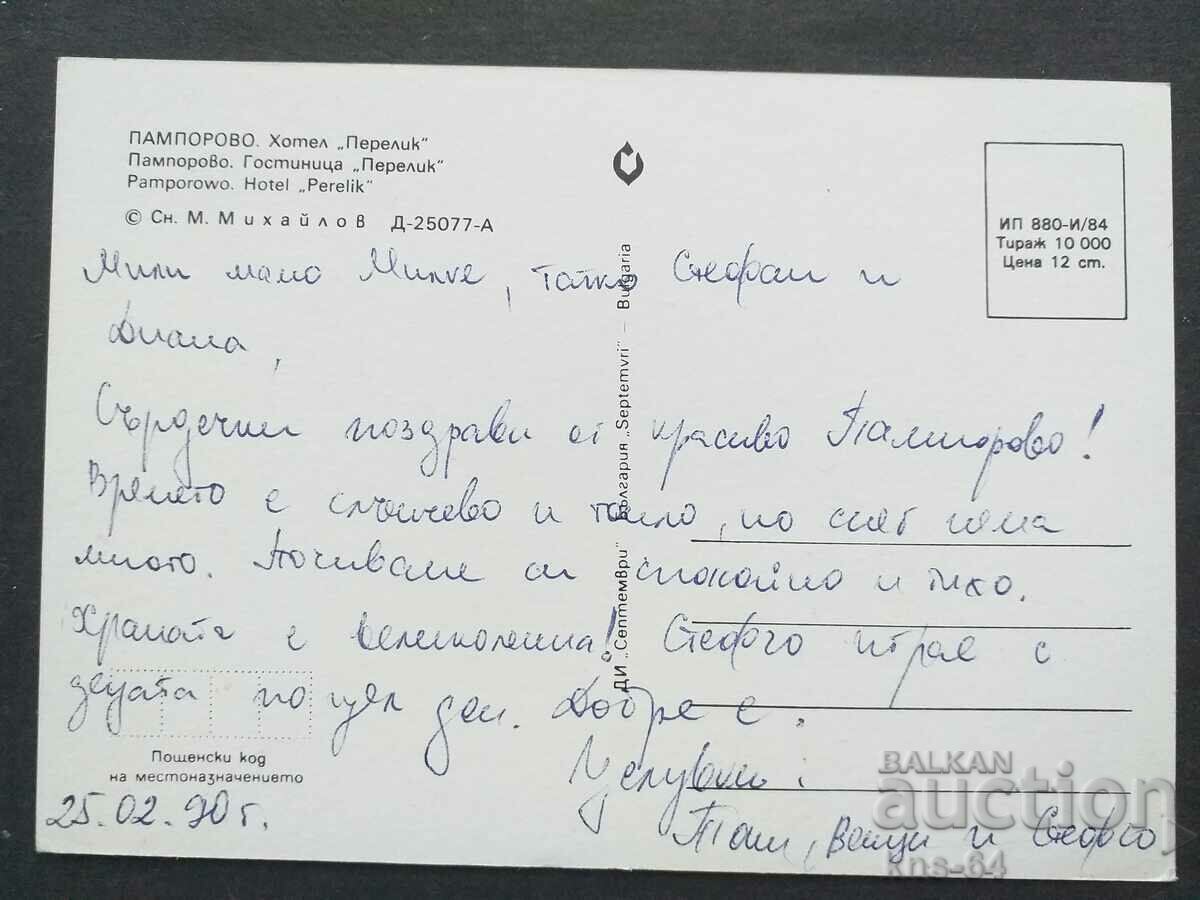 ПАМПОРОВО. Хотел „Перелик“
Пампорово. Гостиница „Перелик“
Pamporowo. Hotel „Perelik“
© Сн. М. Михайлов Д-25077-А
ИП 880-И/84
Тираж 10 000
Цена 12 ст.
Мили мамо Милке, татко Стефан и
Диана,
Сърдечни поздрави от красиво Пампорово!
Времето е слънчево и топло, но сняг няма
много. Почиваме си спокойно и тихо.
Храната е великолепна! Стефчо играе с
децата по цял ден. Добре е.
Целувки:
Тони, Ванци и Стефчо
25.02.90г.
Пощенски код
на местоназначението
ДИ „Септември“ България „Septemvri“ – Bulgaria
BALKAN
auction
kns-64